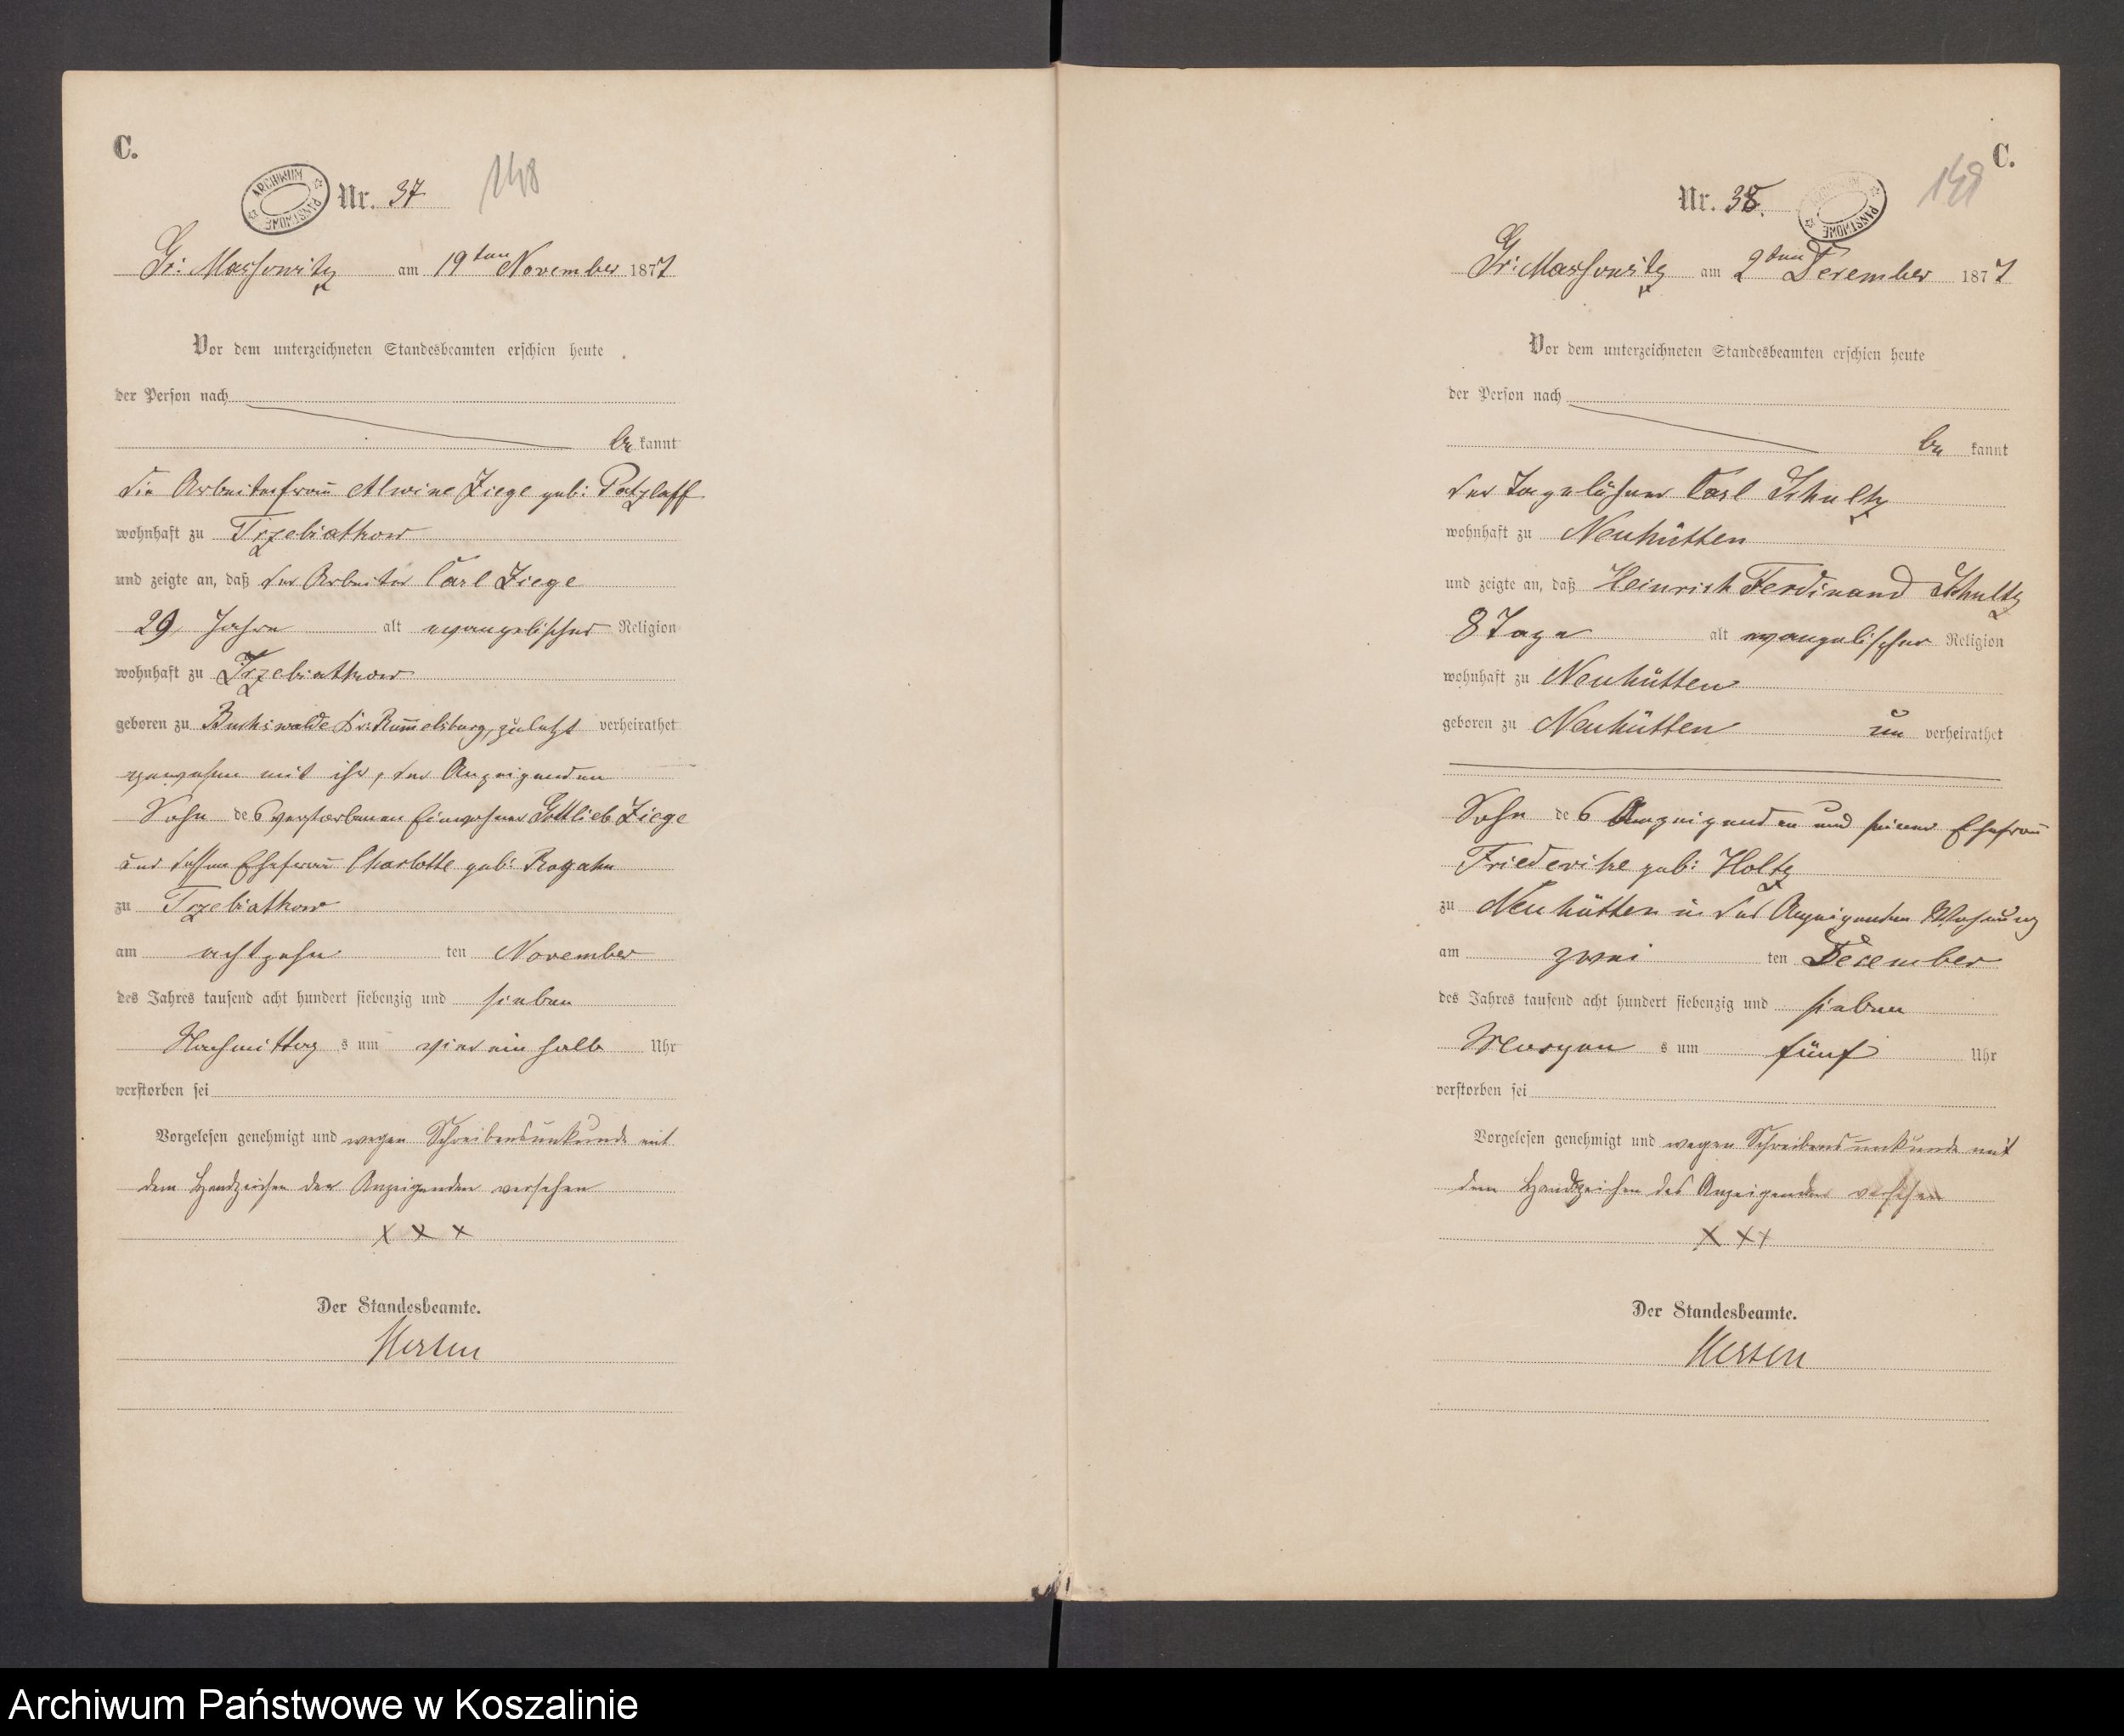 C.
ARCHIWUM PAŃSTWOWE
Nr. 37
148
Gr: Massowitz am 19ten November 1877
Vor dem unterzeichneten Standesbeamten erschien heute
der Person nach
be kannt
die Arbeiterfrau Alwine Ziege geb: Patzlaff
wohnhaft zu Trzebiatkow
und zeigte an, daß der Arbeiter Carl Ziege
29 Jahre alt evangelischer Religion
wohnhaft zu Trzebiatkow
geboren zu Buchswalde Kr: Rummelsburg, zuletzt verheirathet
gewesen mit ihr, der Anzeigenden
Sohn des verstorbenen Einwohner Gottlieb Ziege
und dessen Ehefrau Charlotte geb: Rogahn
zu Trzebiatkow
am achtzehn ten November
des Jahres tausend acht hundert siebenzig und sieben
Nachmittag s um vier ein halb Uhr
verstorben sei
Vorgelesen genehmigt und wegen Schreibensunkunde mit
dem Handzeichen der Anzeigenden versehen
x x x
Der Standesbeamte.
Merten
C.
Nr. 38.
ARCHIWUM PAŃSTWOWE
149
Gr: Massowitz am 2ten December 1877
Vor dem unterzeichneten Standesbeamten erschien heute
der Person nach
be kannt
der Tagelöhner Carl Schultz
wohnhaft zu Neuhütten
und zeigte an, daß Heinrich Ferdinand Schultz
8 Tage alt evangelischer Religion
wohnhaft zu Neuhütten
geboren zu Neuhütten un verheirathet
Sohn des Anzeigenden und seiner Ehefrau
Friederike geb: Holtz
zu Neuhütten in des Anzeigenden Wohnung
am zwei ten December
des Jahres tausend acht hundert siebenzig und sieben
Morgen s um fünf Uhr
verstorben sei
Vorgelesen genehmigt und wegen Schreibensunkunde mit
dem Handzeichen des Anzeigenden versehen
x x x
Der Standesbeamte.
Merten
Archiwum Państwowe w Koszalinie